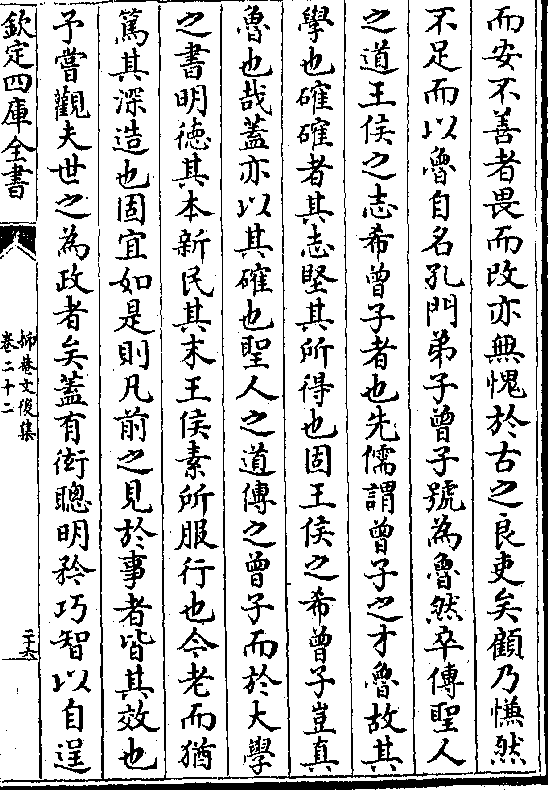 而安不善者畏而改亦無愧於古之良吏矣顧乃慊然
不足而以魯自名孔門弟子曾子號為魯然卒傳聖人
之道王侯之志希曾子者也先儒謂曾子之才魯故其
學也確確者其志堅其所得也固王侯之希曾子豈真
魯也哉蓋亦以其確也聖人之道傳之曾子而於大學
之書明德其本新民其末王侯素所服行也今老而猶
篤其深造也固宜如是則凡前之見於事者皆其效也
予嘗觀夫世之為政者矣蓋有衒聰明矜巧智以自逞
欽定四庫全書
柳巷文後集
卷二十二
二十六